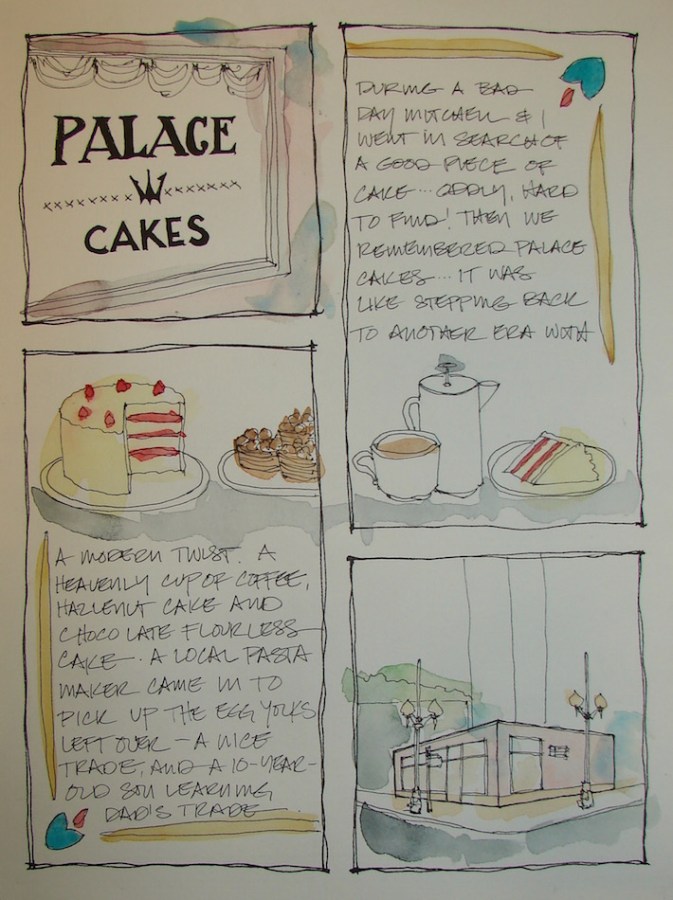 PALACE
CAKES
DURING A BAD
DAY MITCHELL & I
WENT IN SEARCH OF
A GOOD PIECE OF
CAKE... ODDLY, HARD
TO FIND! THEN WE
REMEMBERED PALACE
CAKES... IT WAS
LIKE STEPPING BACK
TO ANOTHER ERA WITH
A MODERN TWIST. A
HEAVENLY CUP OF COFFEE,
HAZLENUT CAKE AND
CHOCOLATE FLOURLESS
CAKE. A LOCAL PASTA
MAKER CAME IN TO
PICK UP THE EGG YOLKS
LEFT OVER - A NICE
TRADE, AND A 10-YEAR-
OLD SON LEARNING
DAD'S TRADE